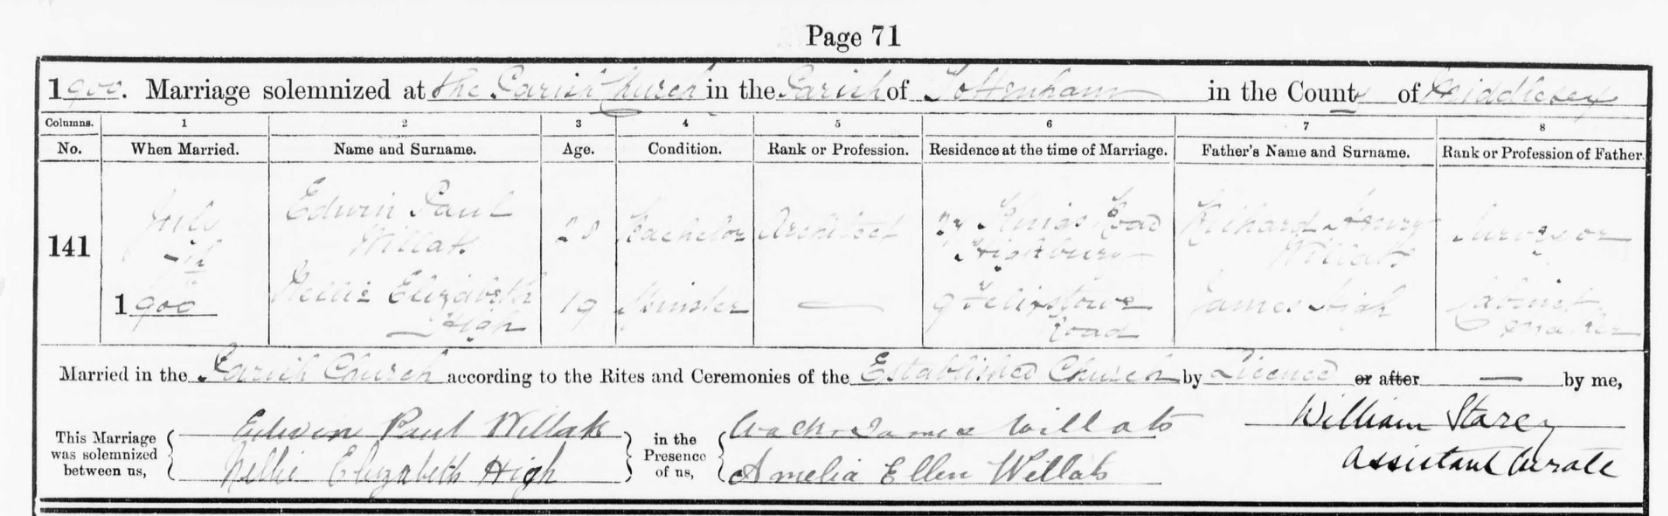 Page 71
1900. Marriage solemnized at the Parish Church in the Parish of Tottenham in the County of Middlesex
Columns. 1 2 3 4 5 6 7 8
No. When Married. Name and Surname. Age. Condition. Rank or Profession. Residence at the time of Marriage. Father's Name and Surname. Rank or Profession of Father.
Edwin Paul Richard Henry
July Willats 28 Bachelor Architect Road Willats Surveyor
141 Highbury
Nellie Elizabeth 9 Felixstowe Cabinet
1900 High 19 Spinster — Road James High Maker
Married in the Parish Church according to the Rites and Ceremonies of the Established Church by Licence or after — by me,
This Marriage was solemnized between us, Edwin Paul Willats in the Presence of us, James Willats William Starey
Nellie Elizabeth High Amelia Ellen Willats Assistant Curate